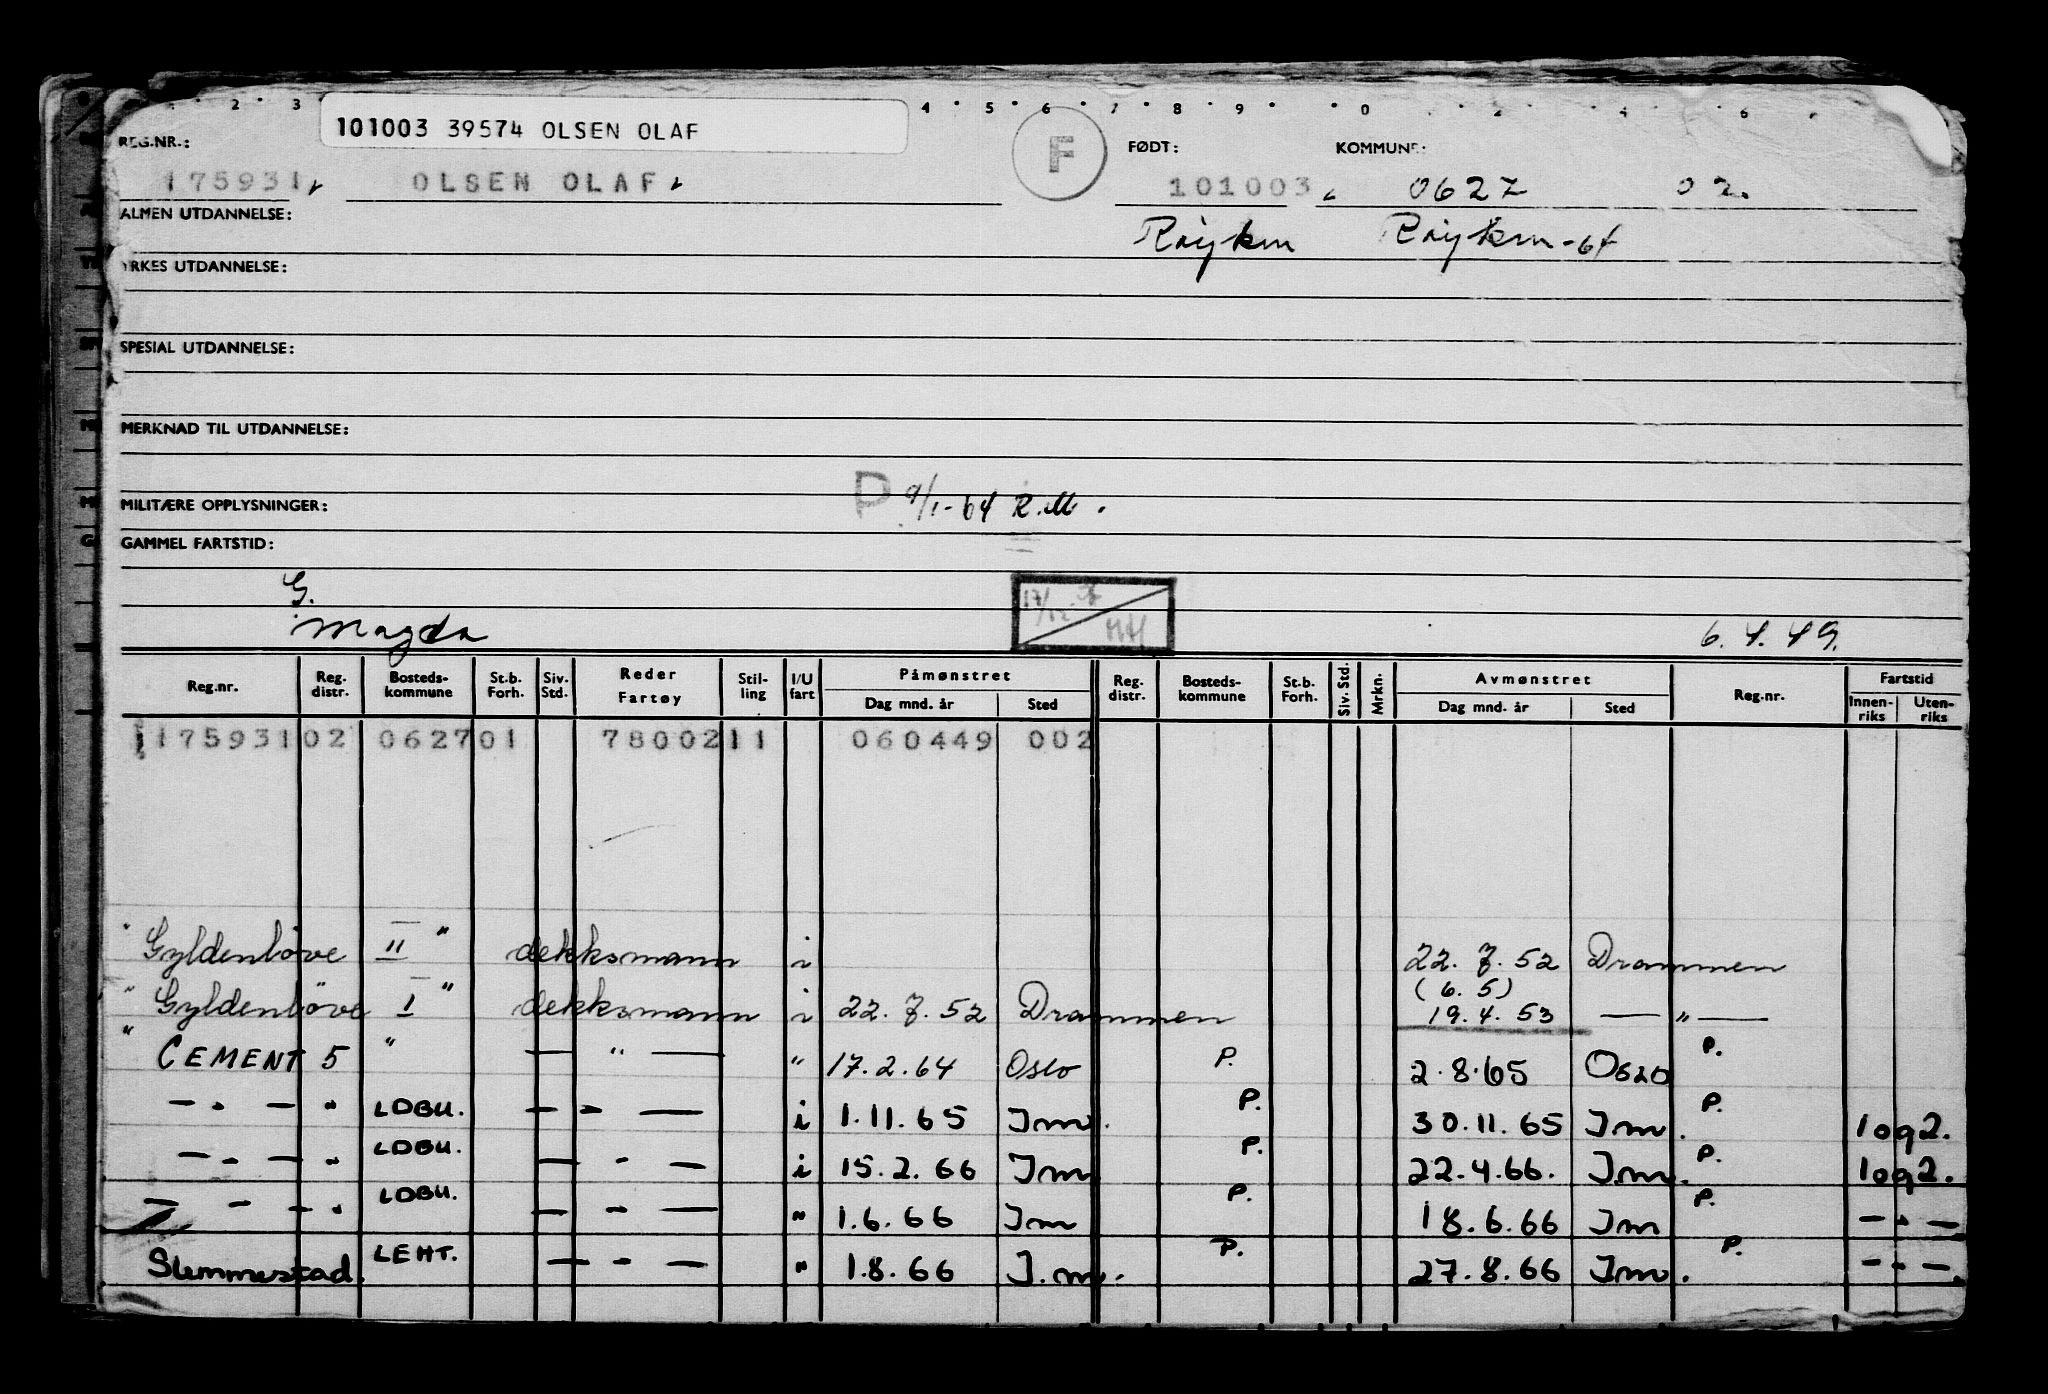 1 2 3 4 5 6 7 8 9 0 2 4 6
101003 39574 OLSEN OLAF
REG.NR.: F FØDT: KOMMUNE:
175931 OLSEN OLAF 101003 0627 02.
ALMEN UTDANNELSE: Røyken Røyken-64
YRKES UTDANNELSE:
SPESIAL UTDANNELSE:
MERKNAD TIL UTDANNELSE:
MILITÆRE OPPLYSNINGER: P 9/1-64 R.M.
GAMMEL FARTSTID:
G. 17/12
Magda 6.4.49.
Reg.nr. Reg. distr. Bosteds- kommune St.b. Forh. Siv. Std. Reder Fartøy Stil- ling I/U fart Påmønstret Dag mnd. år Sted Reg. distr. Bosteds- kommune St.b. Forh. Siv. Std. Mrkn. Avmønstret Dag mnd. år Sted Reg.nr. Fartstid Innen- riks Uten- riks
175931 02 0627 01 78002 11 060449 002
" Gyldenløve II " dekksmann i 22.7.52 Drammen
" Gyldenløve I " dekksmann i 22.7.52 Drammen (6.5) 19.4.53 — " —
" CEMENT 5 " — " — " 17.2.64 Oslo P. 2.8.65 Oslo P.
— " — " LDBU. — " — i 1.11.65 Im. P. 30.11.65 Im. P. 1og2.
— " — " LDBU. — " — i 15.2.66 Im P. 22.4.66. Im. P. 1og2.
— " — " LDBU. — " — " 1.6.66 Im P. 18.6.66 Im P. — " —
Slemmestad. LEHT. — " — " 1.8.66 I.m. P. 27.8.66 Im. P. — " —